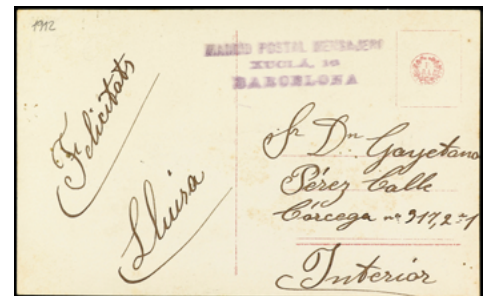 1912
MADRID POSTAL MENSAJERO
XUCLÁ, 16
BARCELONA
Felicitats
Lluisa
Sr. Dn. Gayetano
Pérez Calle
Córcega nº 317, 2º 1
Interior